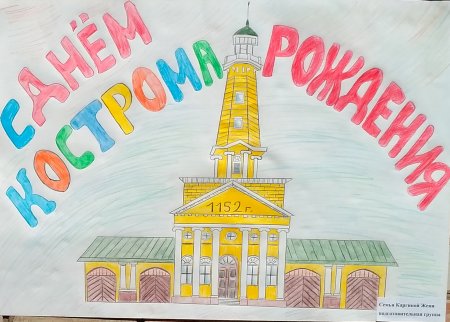 С ДНЁМ
РОЖДЕНИЯ
КОСТРОМА
1152 г.
Семья Каргиной Жени
подготовительная группа